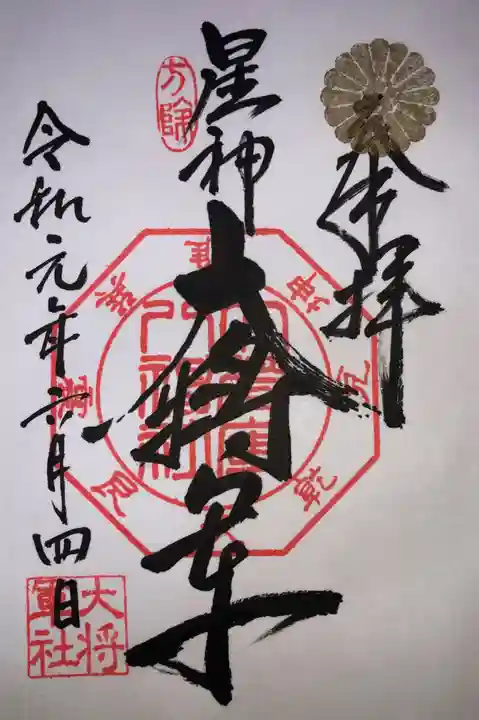 奉拝
星神
大将軍
方除
令和元年六月四日
大将
軍社
坤
兌
乾
艮